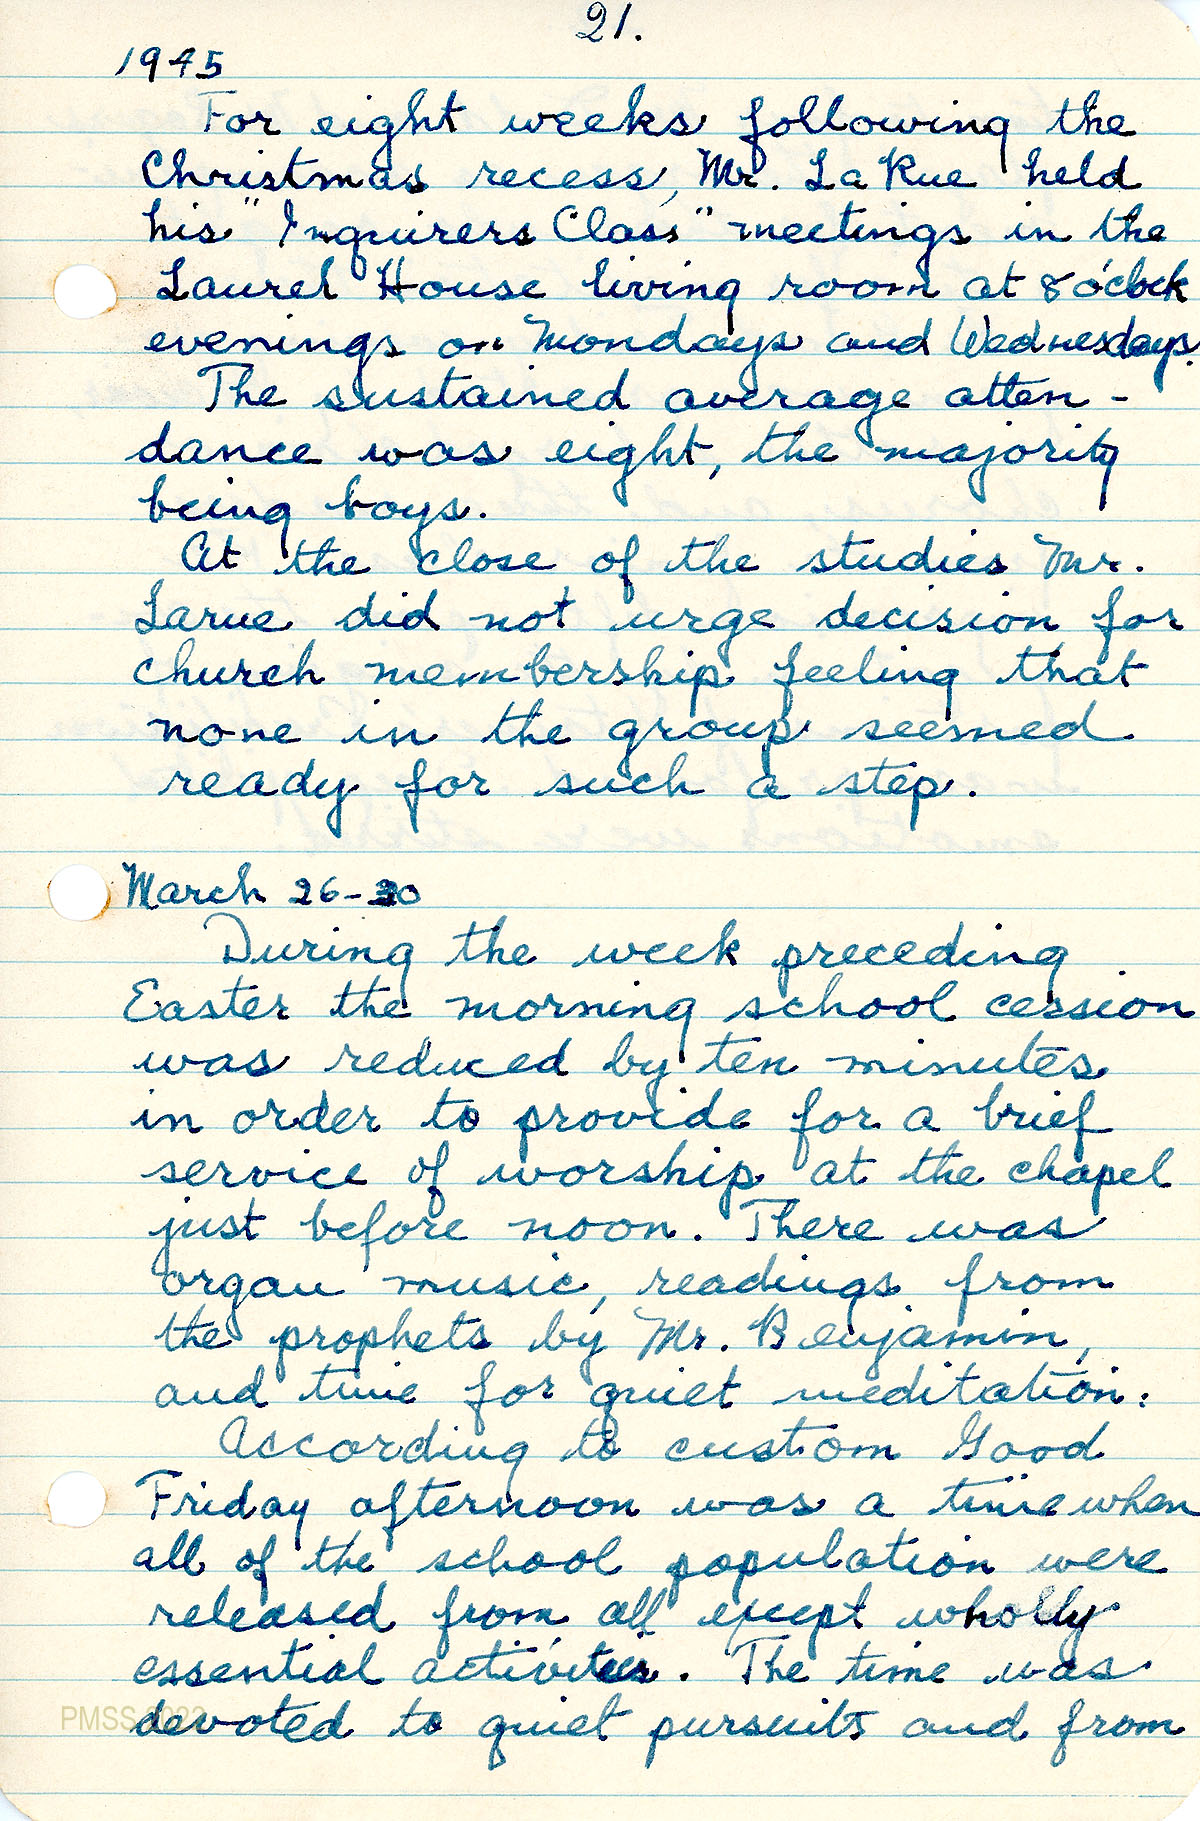 21.
1945
For eight weeks following the
Christmas recess, Mr. La Rue held
his "Inquirers Class" meetings in the
Laurel House living room at 8 o'clock
evenings on Mondays and Wednesdays.
The sustained average atten-
dance was eight, the majority
being boys.
At the close of the studies Mr.
Larue did not urge decision for
church membership feeling that
none in the group seemed
ready for such a step.
March 26-30
During the week preceding
Easter the morning school cession
was reduced by ten minutes
in order to provide for a brief
service of worship at the chapel
just before noon. There was
organ music, readings from
the prophets by Mr. Benjamin,
and time for quiet meditation.
According to custom Good
Friday afternoon was a time when
all of the school population were
released from all except wholly
essential activities. The time was
devoted to quiet pursuits and from
PMSS 2023